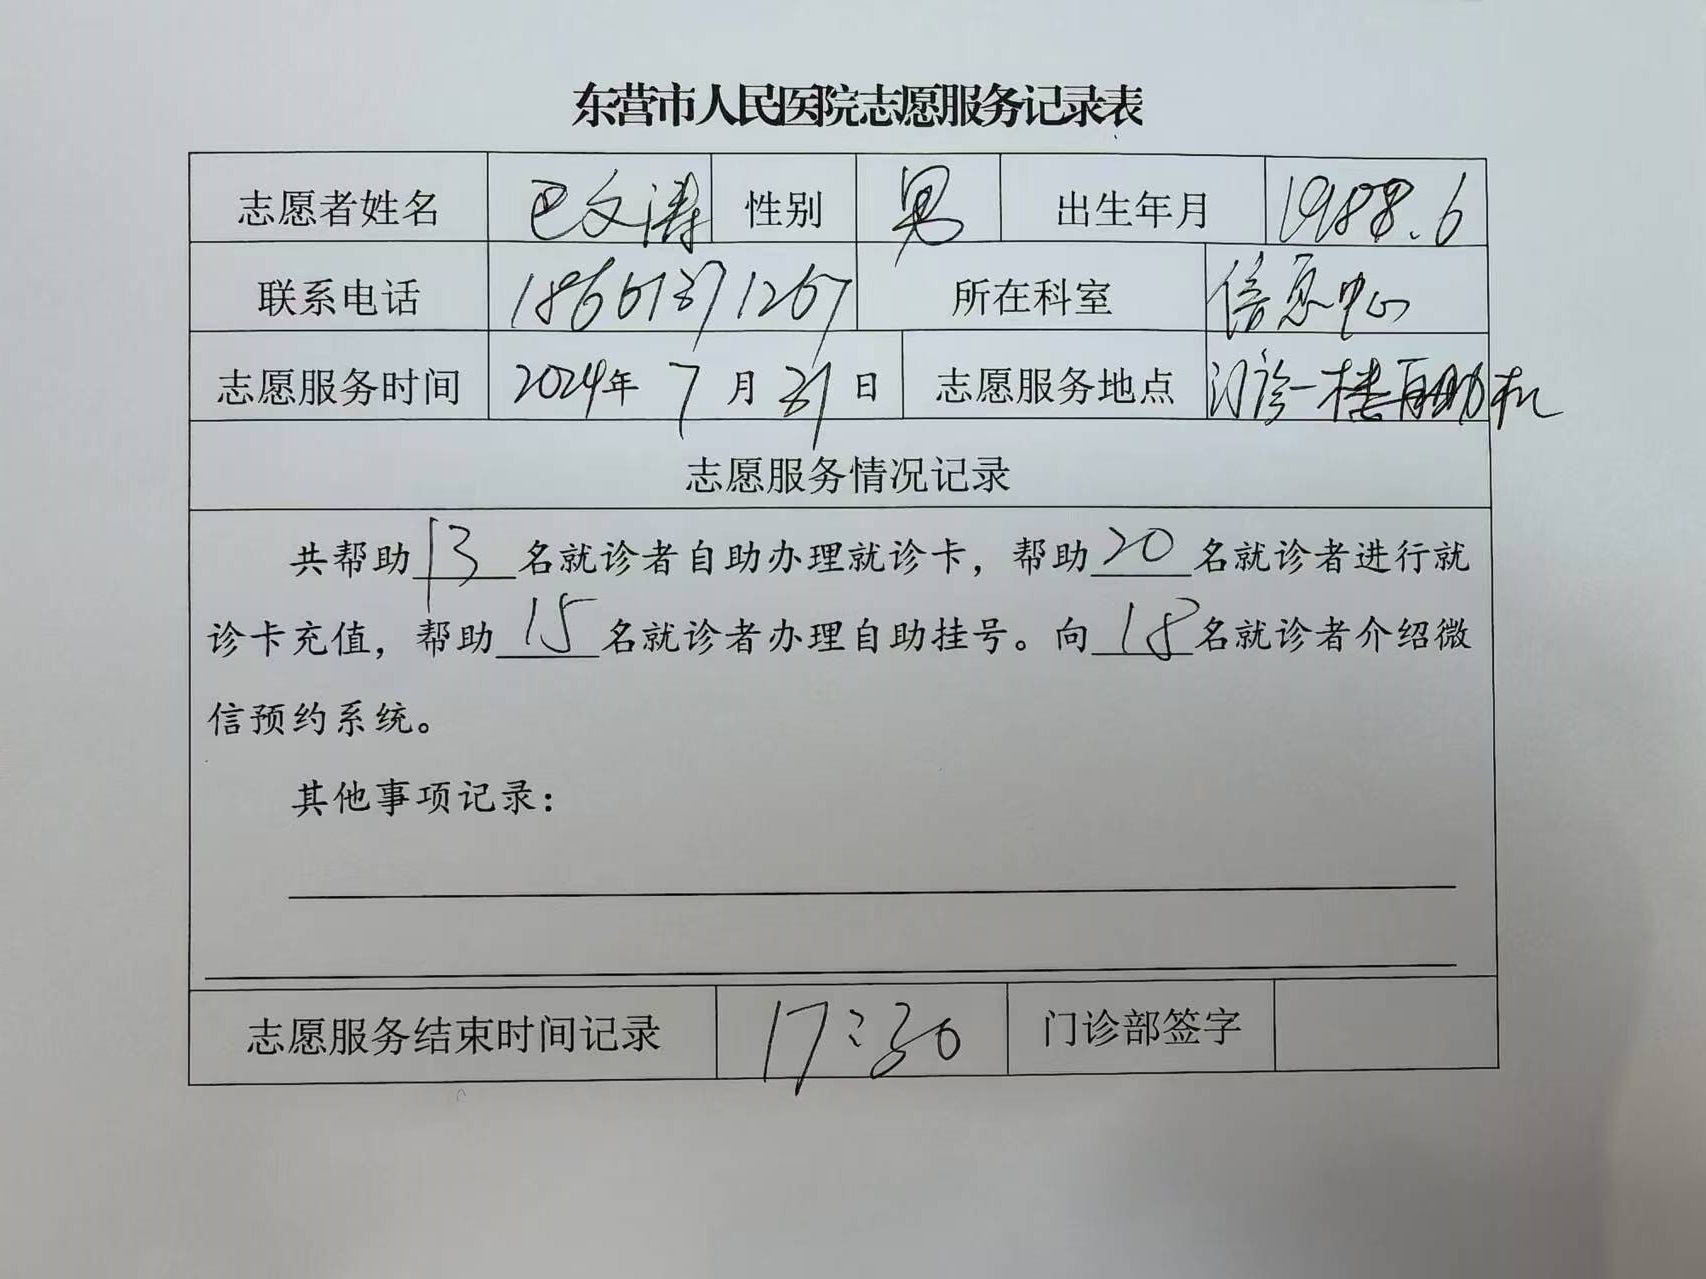 东营市人民医院志愿服务记录表
志愿者姓名 巴文涛 性别 男 出生年月 1988.6
联系电话 18661371267 所在科室 信息中心
志愿服务时间 2024年 7月31日 志愿服务地点 门诊一楼自助机
志愿服务情况记录
共帮助13名就诊者自助办理就诊卡，帮助20名就诊者进行就
诊卡充值，帮助15名就诊者办理自助挂号。向18名就诊者介绍微
信预约系统。
其他事项记录：
志愿服务结束时间记录 17:30 门诊部签字